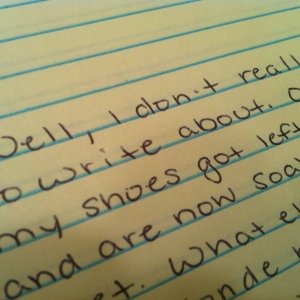 Well, I don't reall
to write about. O
my shoes got left
and are now soa
et. What e
nde